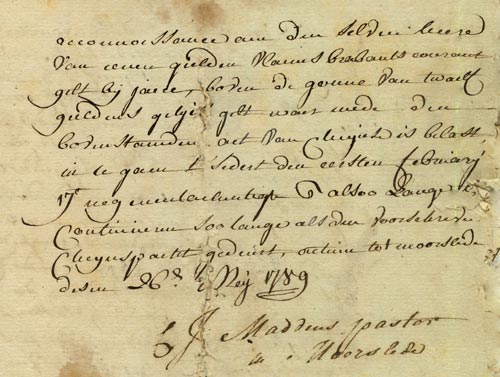 reconnoissance aan den selven heere
van eenen gulden vlams brabants courant
gelt bij jaere, boven de gonne van twaelf
guldens gelt waer mede den
bovenstaenden act van Cheyns is belast
in te gaen t'sedert den eersten februarij
17 neg en alsoo lange te
Continueren soo lange als den voorschreven
Cheynspacht gedeurt, actum tot moorslede
desen 26 Meij 1789
J Maddens pastor
in Moorslede